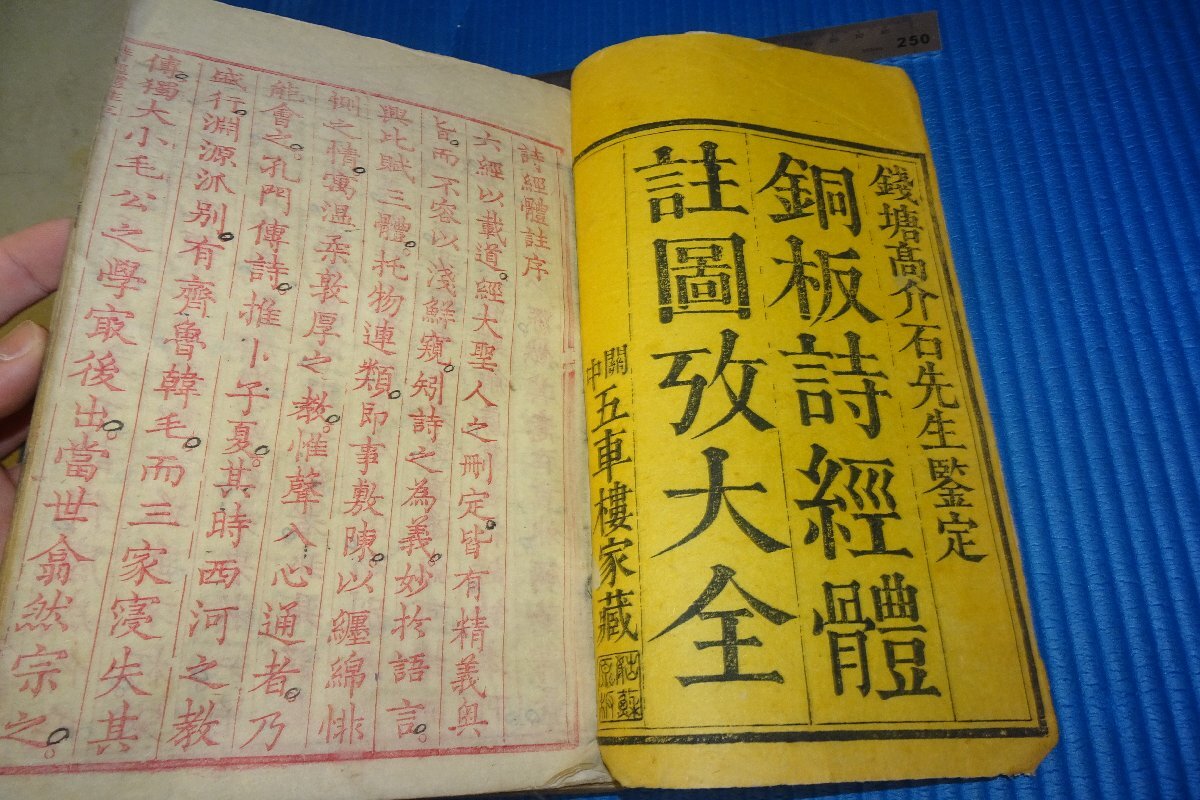 錢塘髙介石先生鑒定
銅板詩經體
註圖攷大全
關中
五車樓家藏
詩經體註序
六經以載道。經大聖人之刪定。皆有精義奥
旨。而不容以淺鮮窺。矧詩之為義。妙於語言。
興比賦三體。托物連類。即事敷陳。以纏綿悱
惻之情。寓温柔敦厚之教。惟聲入心通者。乃
能會之。孔門傳詩。推卜子夏。其時西河之教
盛行。淵源派别。有齊魯韓毛。而三家寖失其
傳。獨大小毛公之學寂後出。當世翕然宗之。
250